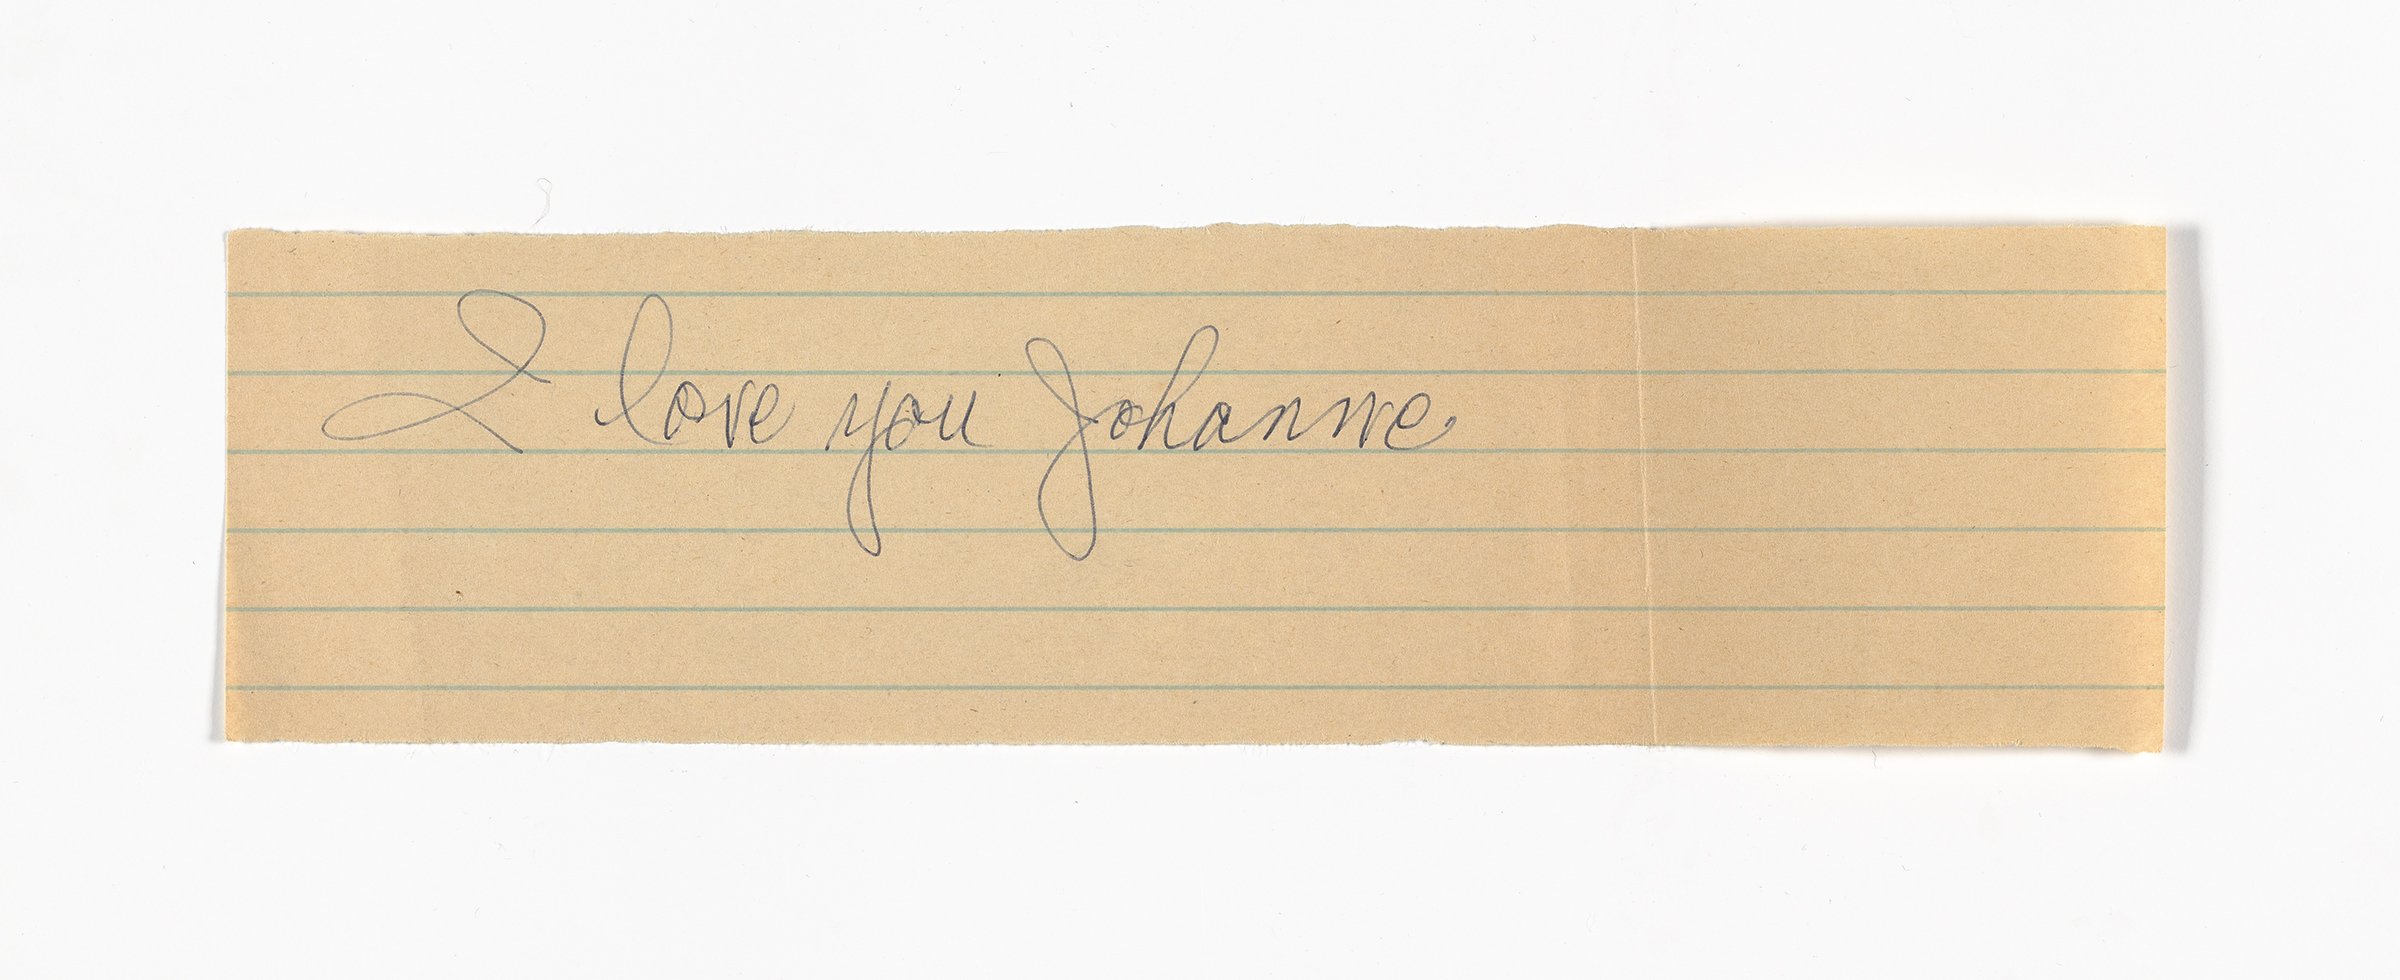 I love you Johanne